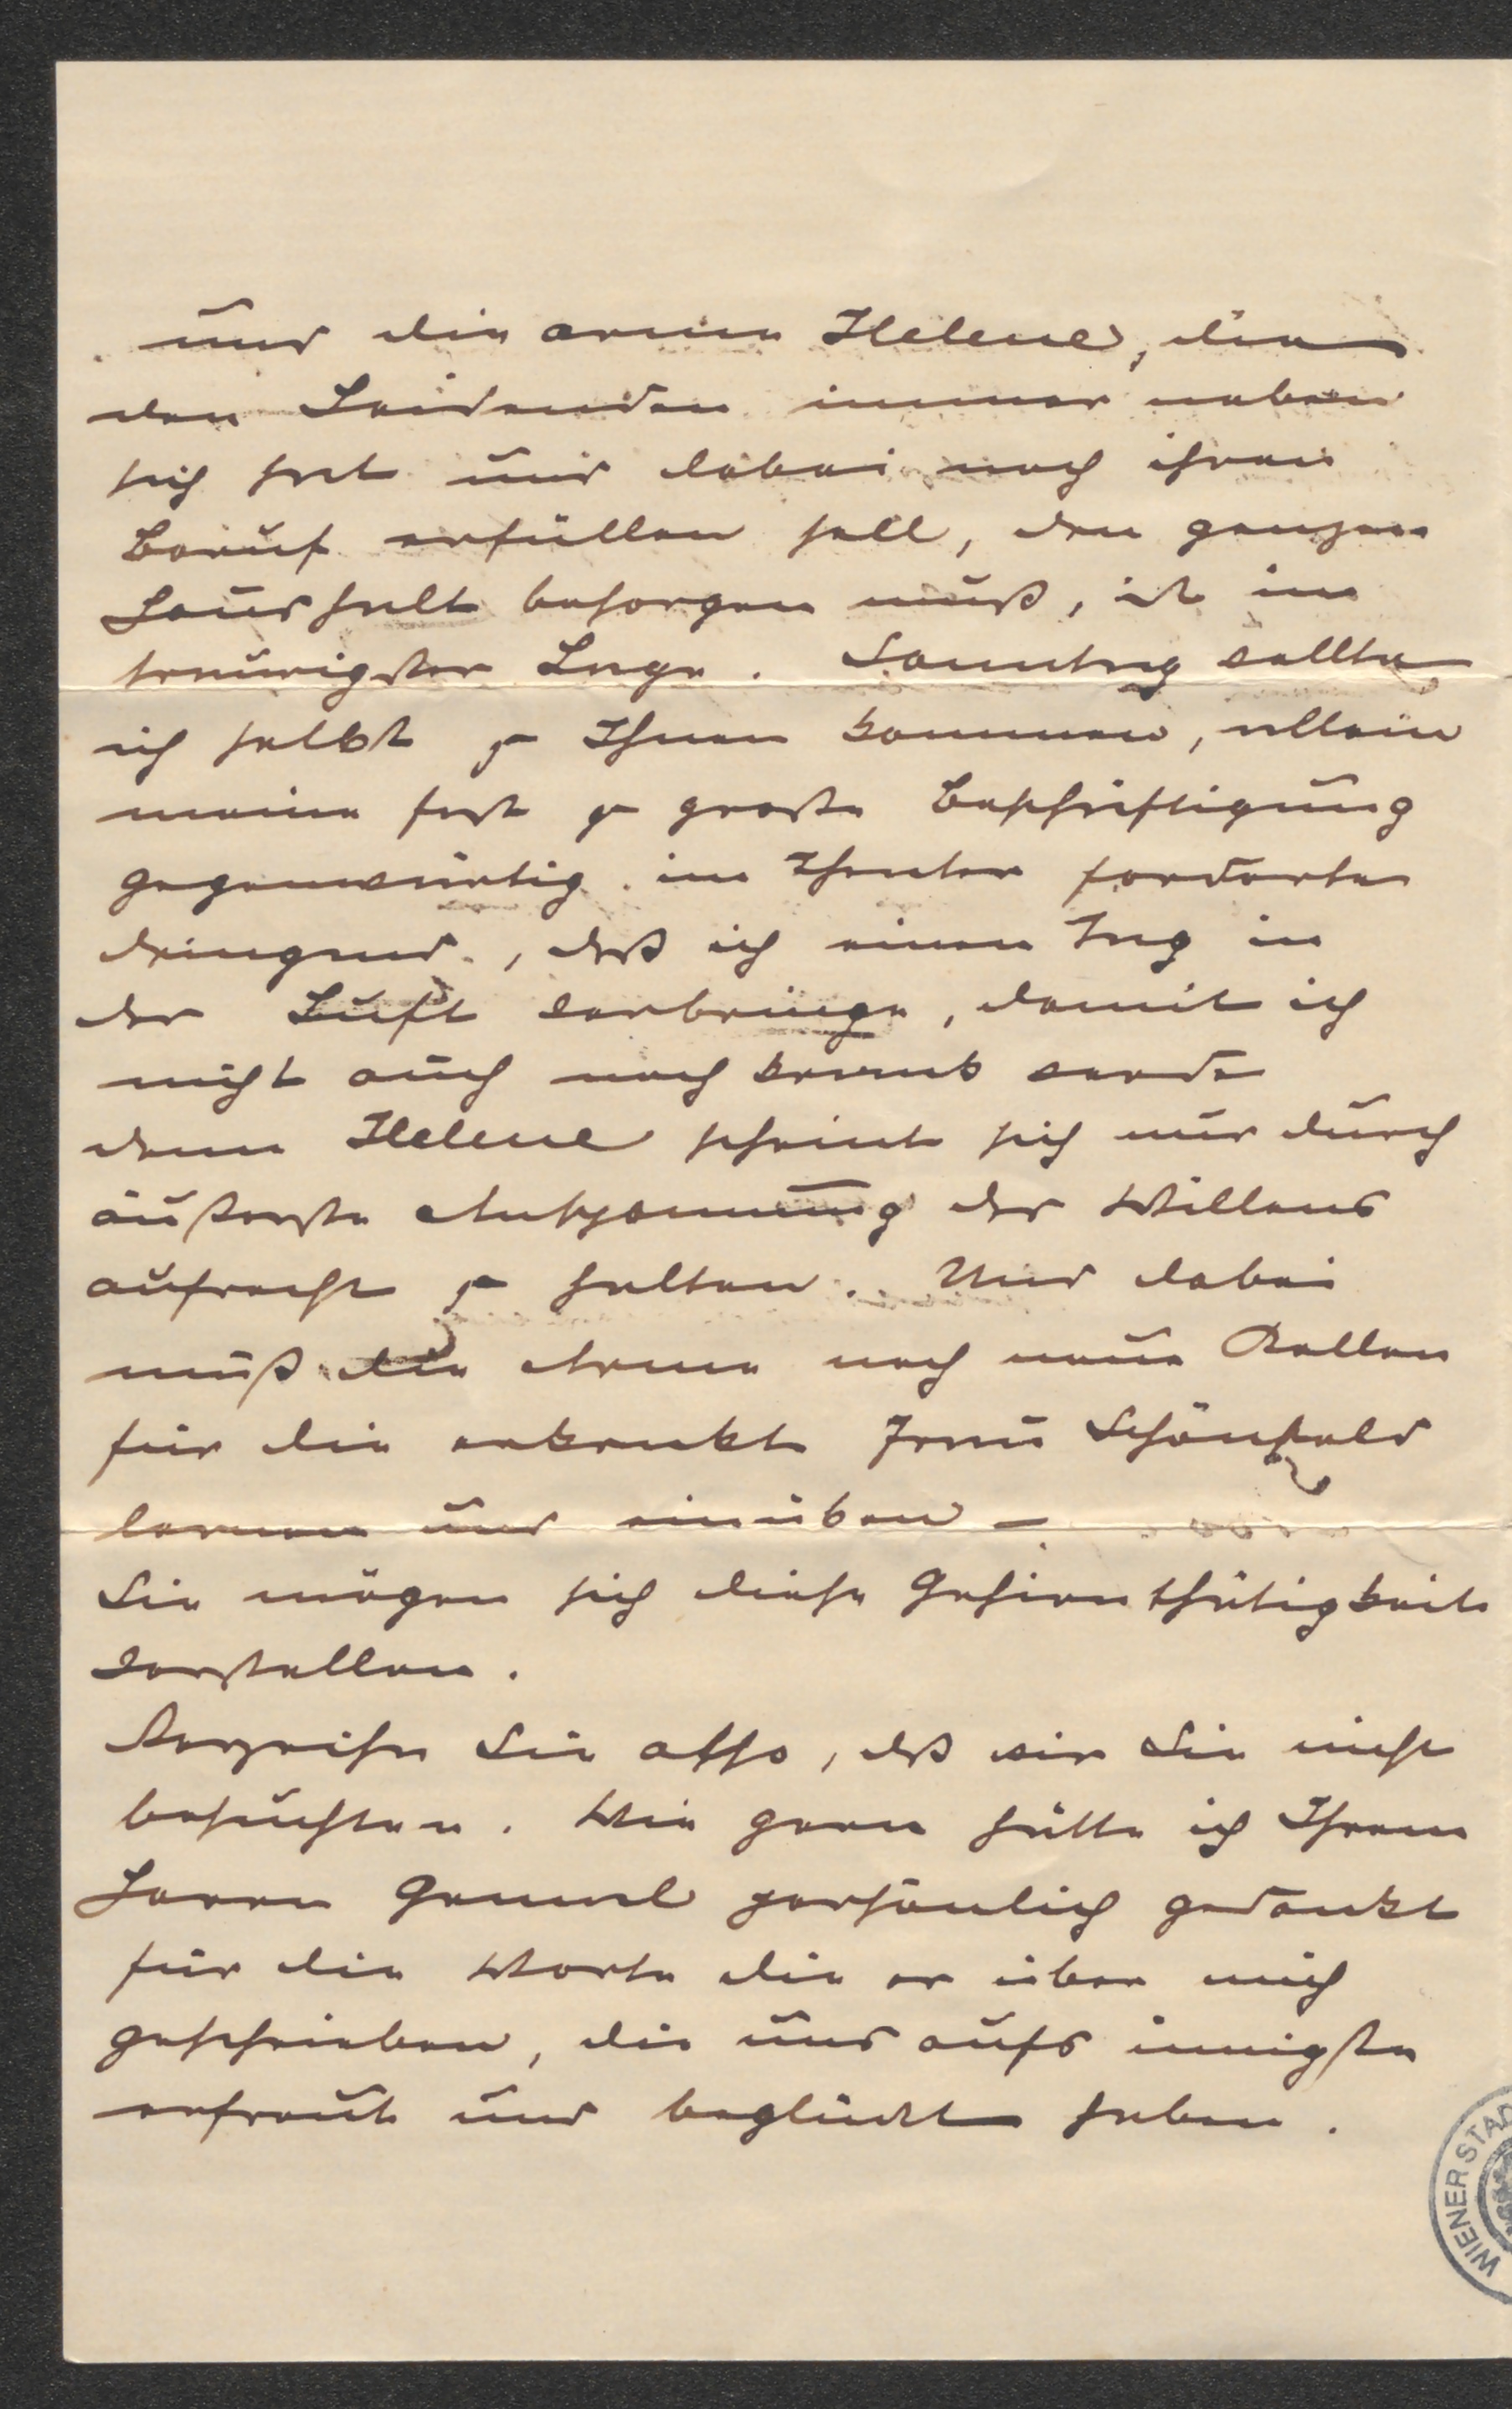 und die arme Helene, die
den Leidenden immer neben
sich hat und dabei noch ihren
Beruf erfüllen soll, den ganzen
Haushalt besorgen muß, ist in
traurigster Lage. Sonntag wollte
ich selbst zu Ihnen kommen, allein
meine fast zu große Beschäftigung
gegenwärtig im Theater forderte
dringend, daß ich einen Tag in
der Luft verbringe, damit ich
nicht auch noch krank werde
denn Helene scheint sich nur durch
äußerste Anspannung des Willens
aufrecht zu halten. Und dabei
muß die Arme noch neue Rollen
für die erkrankte Frau Schönfeld
lernen und einüben –
Sie mögen sich diese Gehirnthätigkeit
vorstellen.
Verzeihen Sie also, daß wir Sie nicht
besuchten. Wie gern hätte ich Ihrem
Herrn Gemal persönlich gedankt
für die Worte die er über mich
geschrieben, die uns aufs innigste
erfreut und beglückt haben.
WIENER STAD